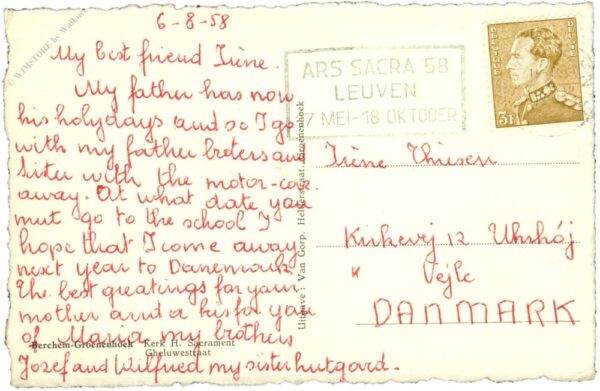 6-8-58
My best friend Irène.
My father has now
his holydays and so I go
with my father broters and
Sister with the motor-car
away. At what date you
mut go to the school I
hope that I come away
next year to Danemark.
The best greatings for your
mother and or kis for you
of Maria my brothers
Jozef and Wilfried my sister hutgard.
Berchem-Groenenhoek Kerk H. Sacrament
Gheluwestraat
Uitgave: Van Gorp, Helderstraat, Groenenhoek
© WIMSTORE by Walkner
ARS SACRA 58
LEUVEN
7 MEI-18 OKTOBER
BELGIQUE BELGIE
3F
Irène Thiesen
Kirkevej 12 Uhrhöj
Vejle
DANMARK